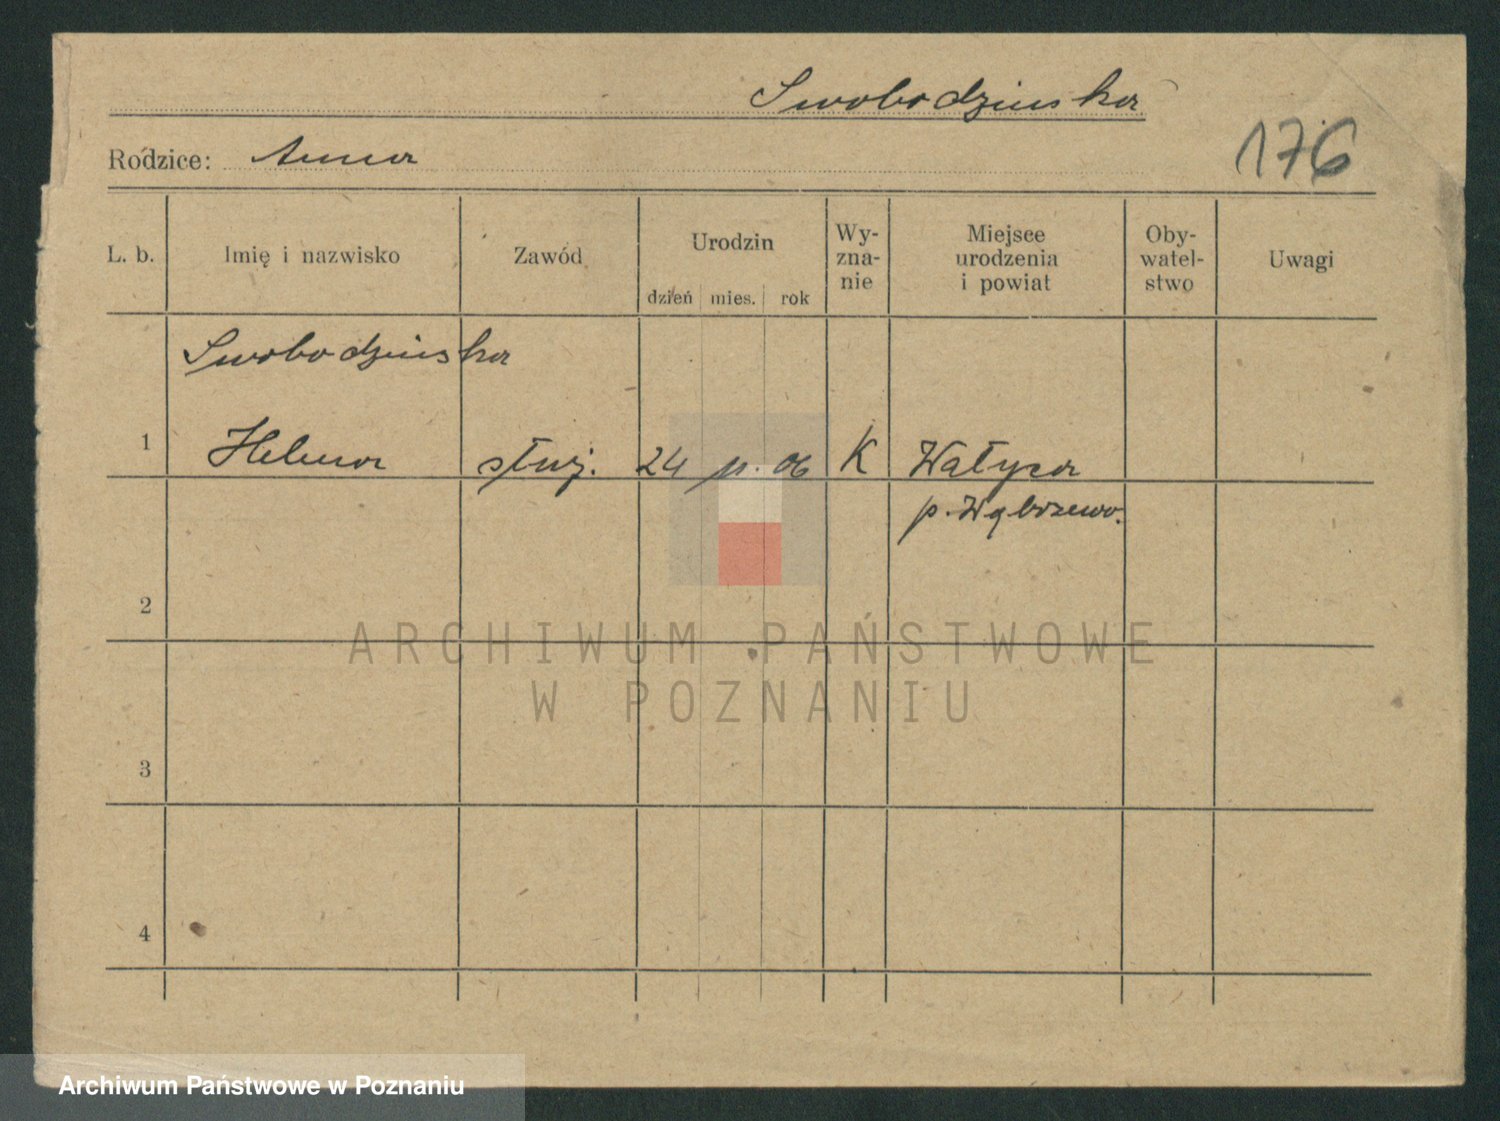 Swobodzinska
Rodzice: Anna
176
L. b. Imię i nazwisko Zawód Urodzin dzień mies. rok Wy-
zna-
nie Miejsce
urodzenia
i powiat Oby-
watel-
stwo Uwagi
Swobodzinska
1 Helena służ. 24 06 K Wałycz
p. Wąbrzeźno.
2
ARCHIWUM PAŃSTWOWE
W POZNANIU
3
4
Archiwum Państwowe w Poznaniu